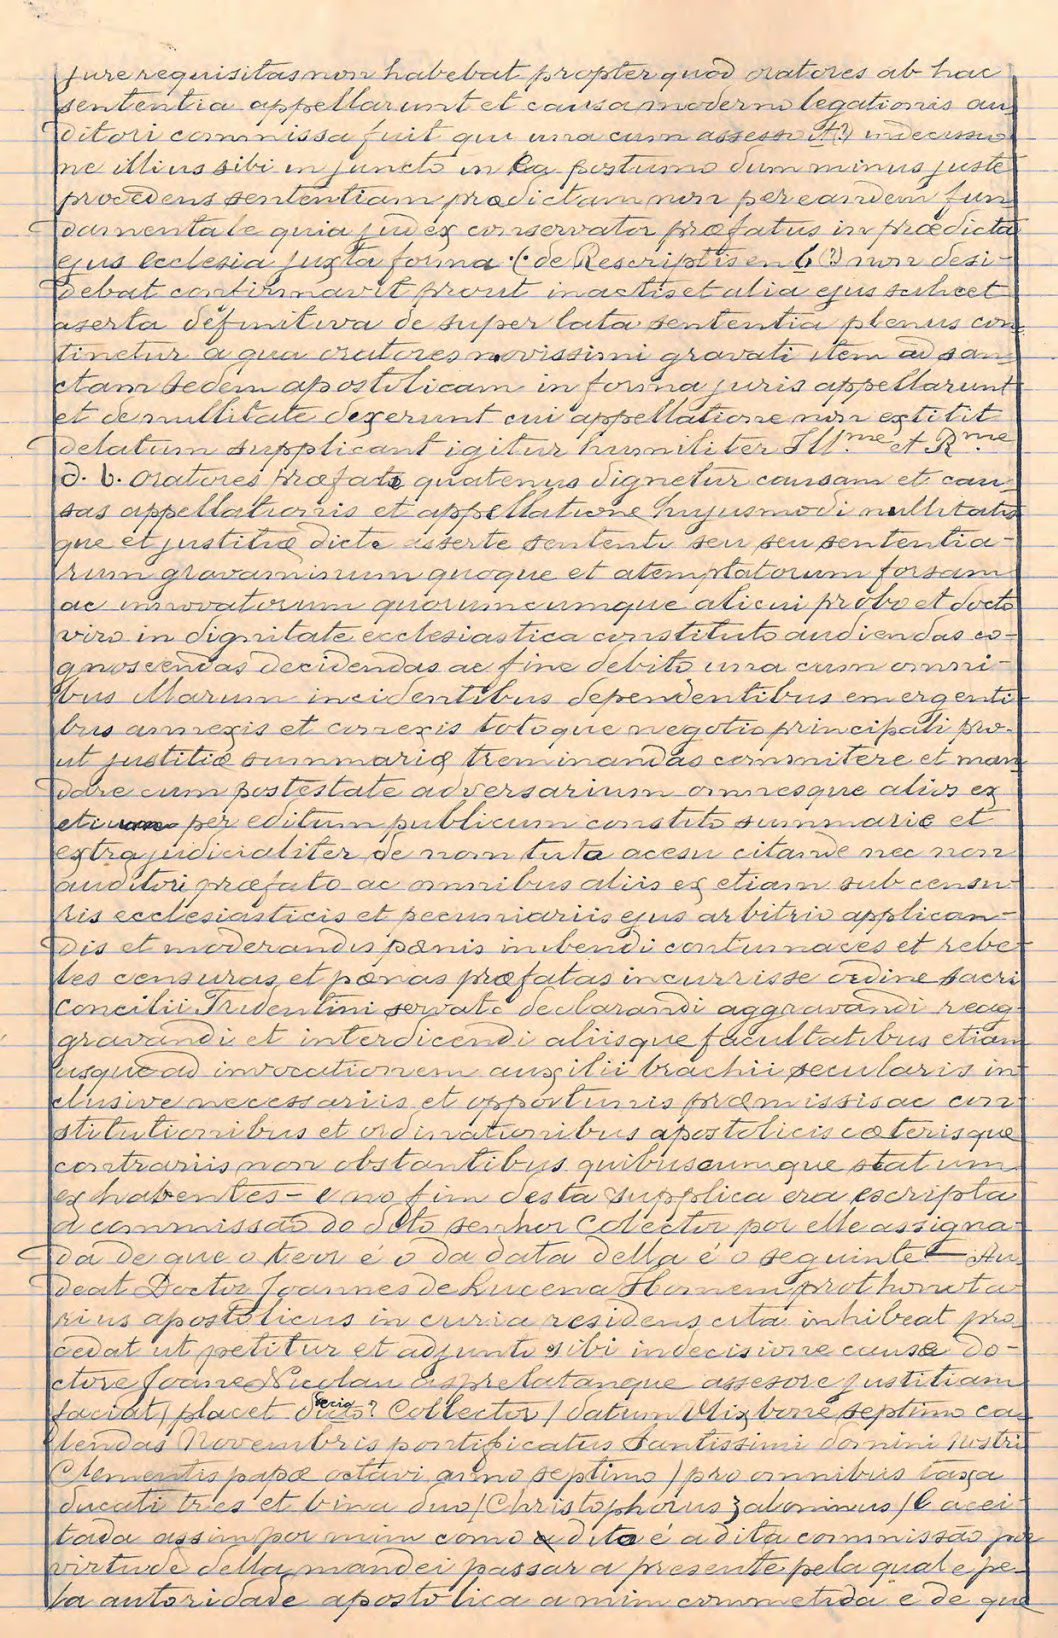 jure requisitas non habebat propter quod oratores ab hac
sententia appellarunt et causa moderni legationis au
ditori commissa fuit qui una cum assessoit(?) indecissio
ne illius sibi injuncto in ea postumo dum minus juste
procedens sententiam prædictam non per eamdem fun
damentale quia judex conservator præfatus in prædicta
ejus ecclesia juxta forma · (· de Rescriptis en 6 (?) non desi-
debat confirmavit prout in actis et alia ejus scilicet
aserta definitiva de super lata sententia plenus con
tinetur a qua oratores novissimi gravati item ad san
ctam sedem apostolicam in forma juris appellarunt
et de nullitate dixerunt cui appellatione non extitit
delatum supplicant igitur humiliter Ill.me et R.me
D. V. oratores præfate quatenus dignetur causam et cau
sas appellationis et appellatione hujusmodi nullitatis
que et justitiæ dicte asserte sententi seu seu sententia-
rum gravaminum quoque et atemptatorum forsam
ac innovatorum quorumcumque alicui probo et docto
viro in dignitate ecclesiastica constituto audiendas co-
gnoscendas decidendas ac fine debito una cum omni-
bus illarum incidentibus dependentibus emergenti
bus annexis et conexis totoque negotio principali pro-
ut justitiæ summariæ treminandas commitere et man
dare cum postestate adversarium omnesque alios ex
eti per editum publicum constito summarie et
extrajudicialiter de nom tuto acesu citande nec non
auditori præfato ac omnibus aliis ex etiam sub censu
ris ecclesiasticis et pecuniariis ejus arbitrio applican-
dis et moderandis pœnis inibendi contumaces et rebe
les censuras et pœnas præfatas incurrisse ordine sacri
Concilii Tridentini servato declarandi aggravandi reag
gravandi et interdicendi aliisque facultatibus etiam
usque ad invocationem auxilii brachii secularis in
clusive necessariis et opportunis præmissis ac con
stitutionibus et ordinationibus apostolicis cœterisque
contrariis non obstantibus quibuscumque statum
ex habentes – e no fim desta supplica era escripta
a commissão do dito senhor Colector por elle assigna-
da de que o teor é o da data della é o seguinte – Au-
deat Doctor Joannes de Lucena Homem prothonota
rius apostolicus in curia residens cita inhibeat pro
cedat ut petitur et adjunto sibi in decisione causæ Do-
ctore Joane Nicolau asprelatanque assesore justitiam
faciat / placet dicto? Collector / datum Ulixbone septimo ca-
lendas Novembris pontificatus Santissimi domini nostri
Clementis papæ octavi anno septimo / pro omnibus taxa
ducati tres et bina duo / Christophorus zalominus / E acei
tada assim por mim como dito é a dita commissão por
virtude della mandei passar a presente pela qual e pe-
la autoridade apostolica a mim commetida e de que